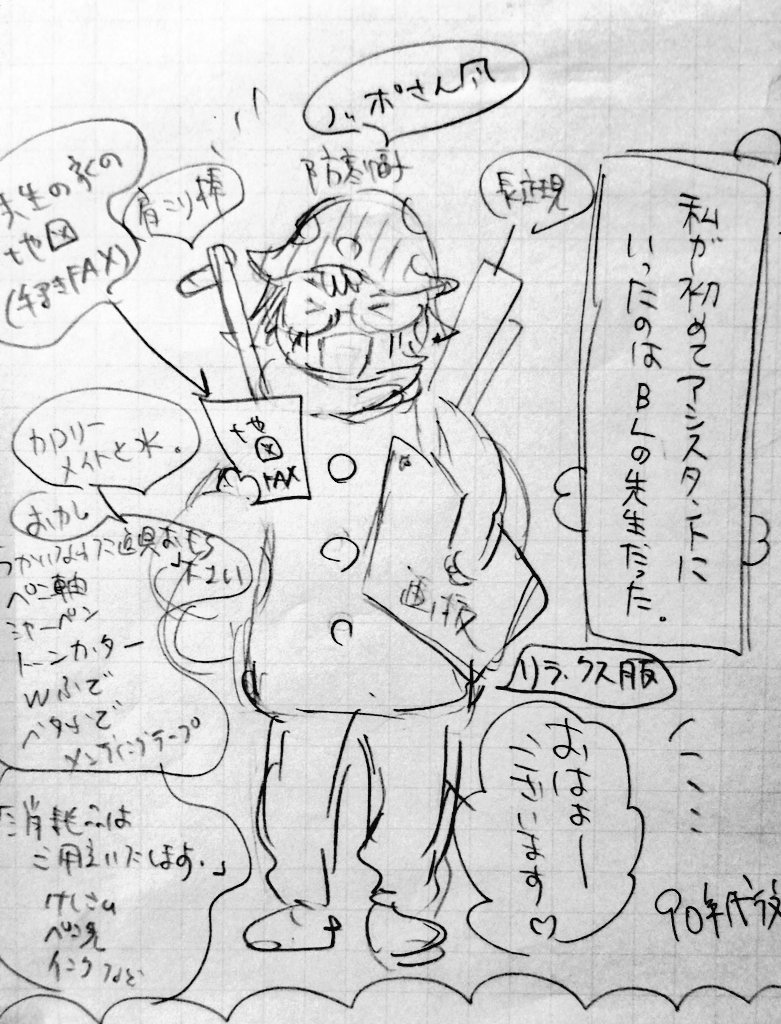 私が初めてアシスタントに
いったのはBLの先生だった。
ノッポさん風
防寒帽
長定規
肩こり棒
先生の家の
地図
(手書きFAX)
地
図
FAX
カロリー
メイトと水。
おかし
つかいなれた道具おもち
下さい
ペン軸
シャーペン
トーンカッター
Wふで
ベタふで
メンディングテープ
消耗品は
ご用意いたします。」
けしゴム
ペン先
インクなど
画板
リラックス服
おはよー
ございます♡
90年代